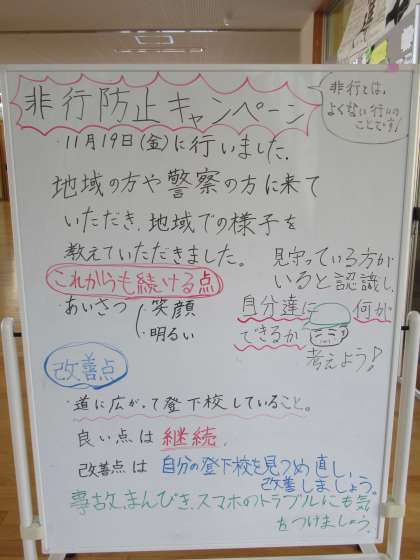 非行防止キャンペーン
非行とは、
よくない行いの
ことです!
・11月19日(金)に行いました。
地域の方や警察の方に来て
いただき、地域での様子を
教えていただきました。
これからも続ける点
・あいさつ
・笑顔
・明るい
見守っている方が
いると認識し、
自分達に何が
できるか
考えよう!
改善点
・道に広がって登下校していること。
良い点は継続、
改善点は自分の登下校を見つめ直し、
改善しましょう。
事故、まんびき、スマホのトラブルにも気
をつけましょう。